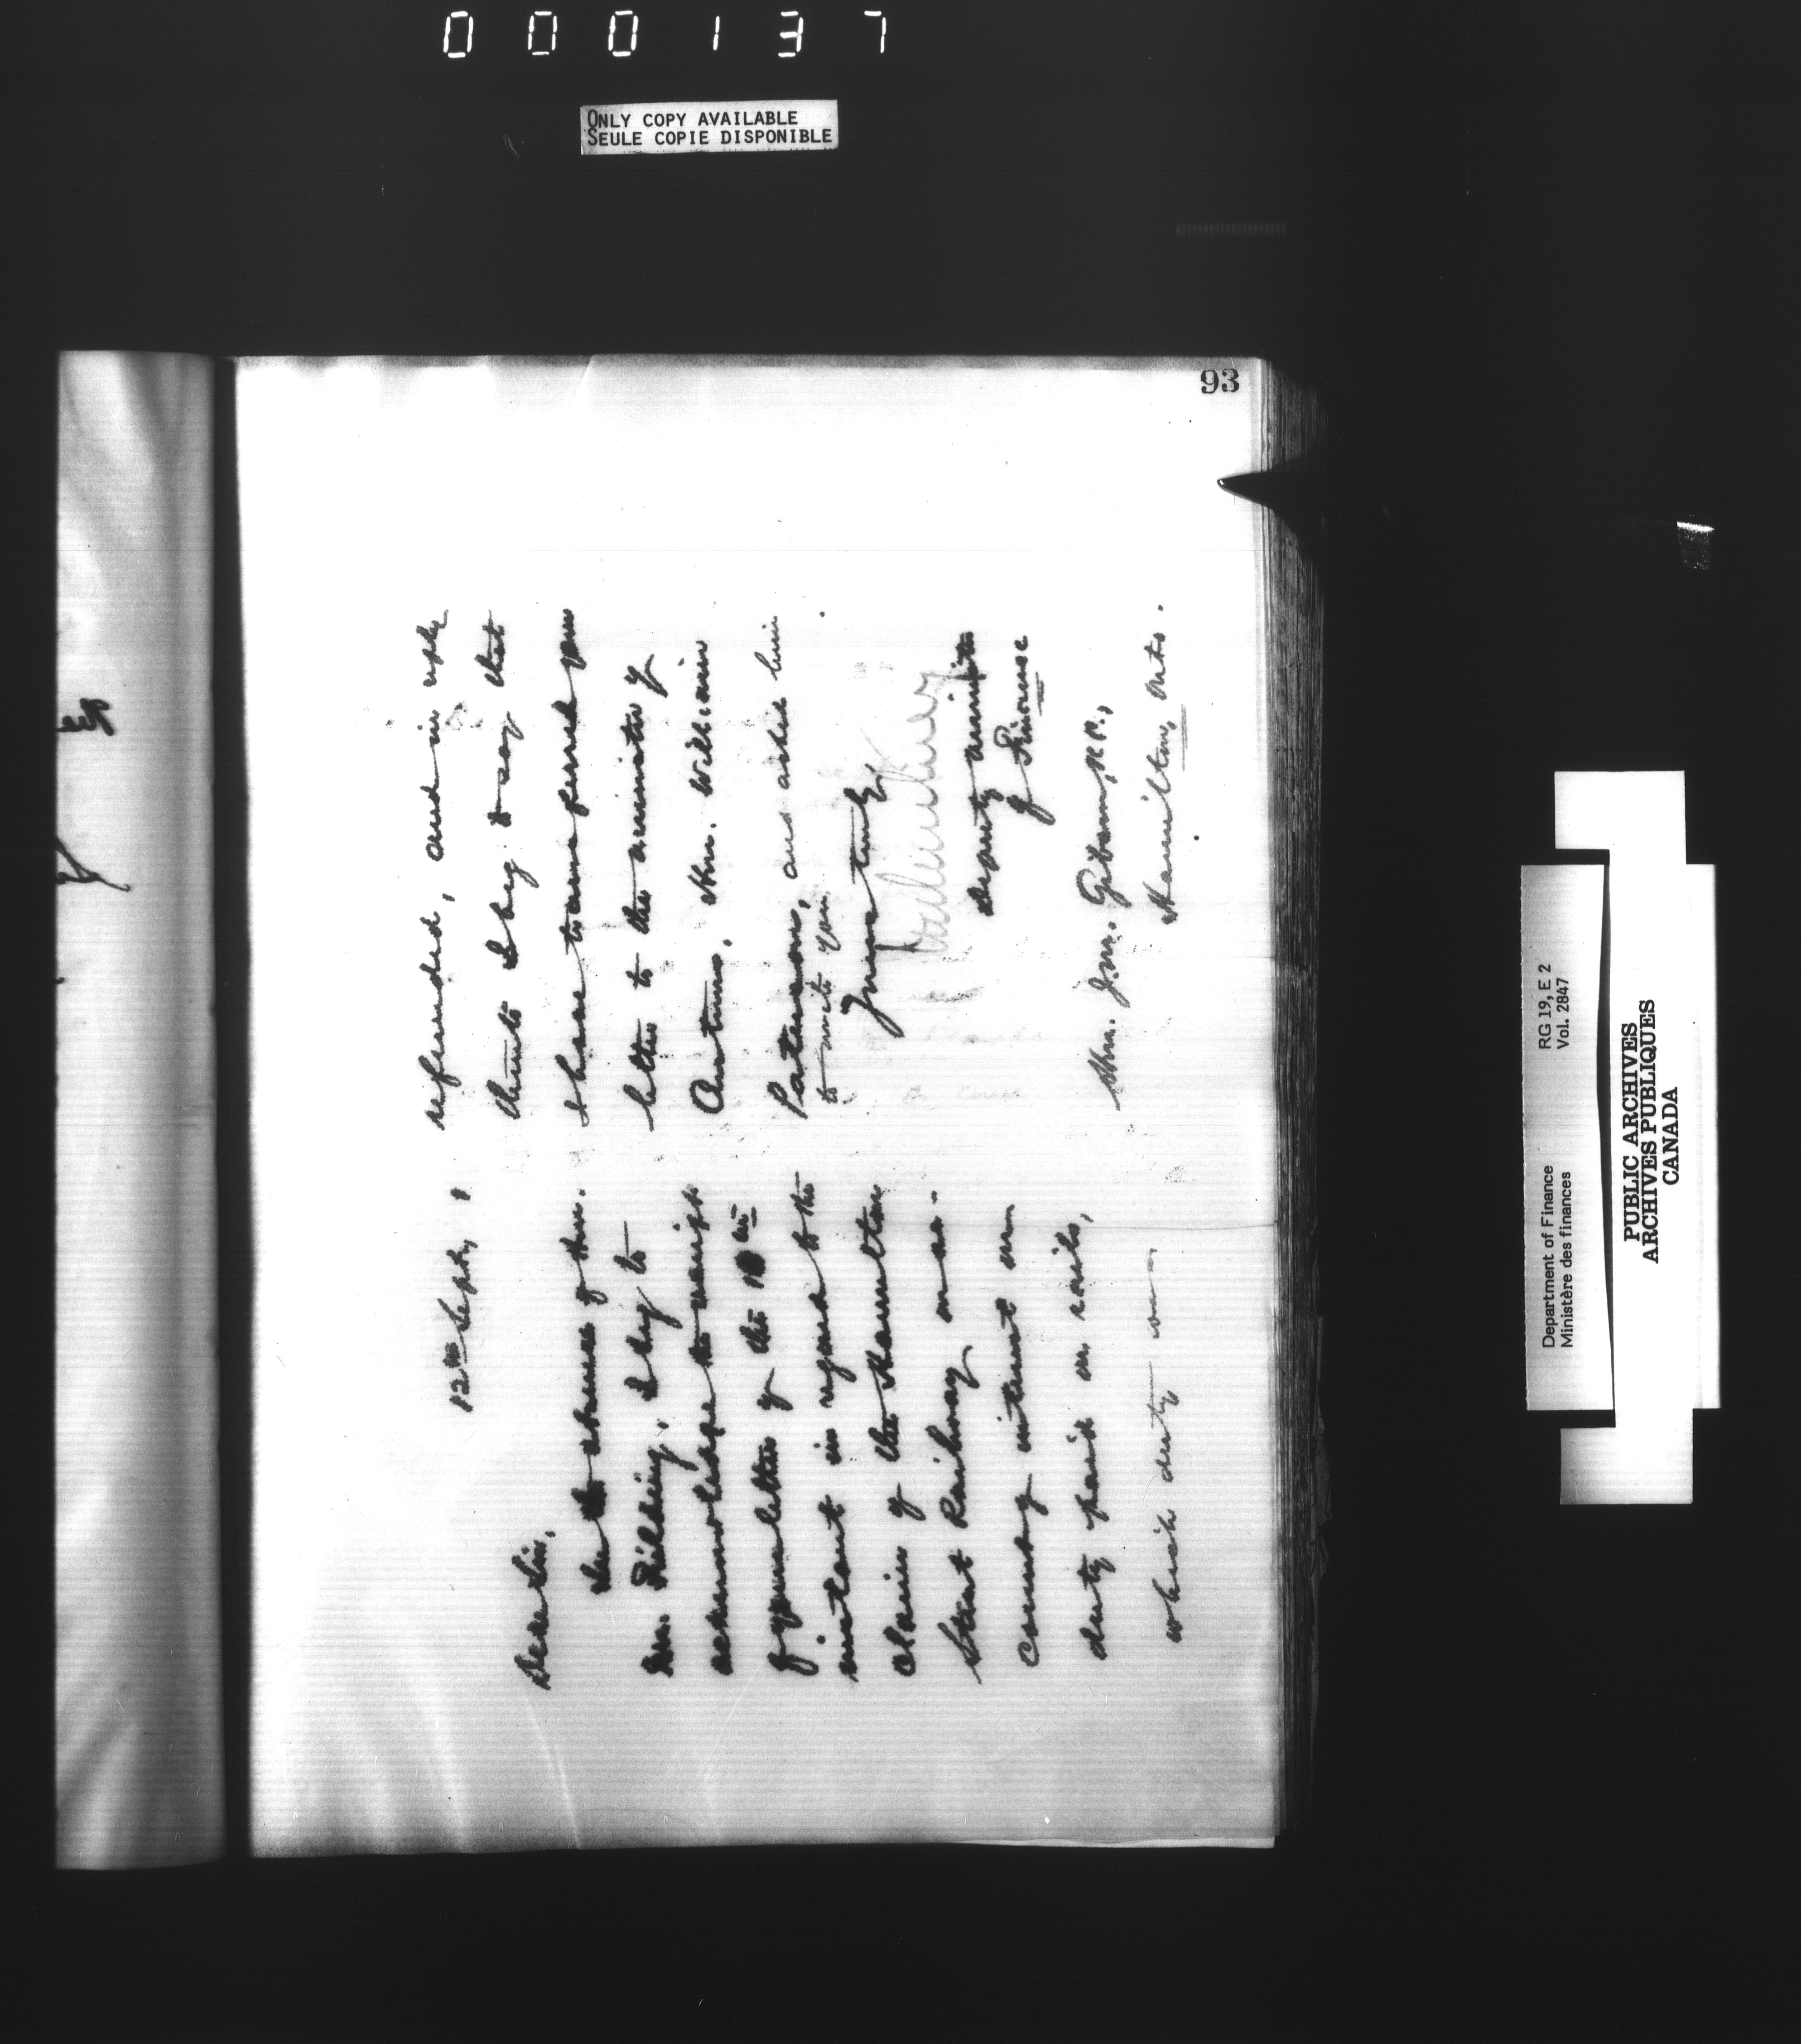 000137
ONLY COPY AVAILABLE
SEULE COPIE DISPONIBLE
93
12th Sept, 1
Dear Sir,
In the absence of Hon.
Mr. Fielding, I beg to
acknowledge the receipt
of your letter of the 10th
instant in regard to the
claim of the Hamilton
Street Railway
Company interest on
duty paid on rails,
which duty was
refunded, and in reply
thereto I beg to say that
I have transferred your
letter to the Minister of
Customs, Hon. William
Paterson, and asked him
to write you.
Yours truly
Deputy Minister
of Finance
Wm. Gibson, M.P.,
Hamilton, Ont.
Department of Finance
Ministère des finances
RG 19, E 2
Vol. 2847
PUBLIC ARCHIVES
ARCHIVES PUBLIQUES
CANADA